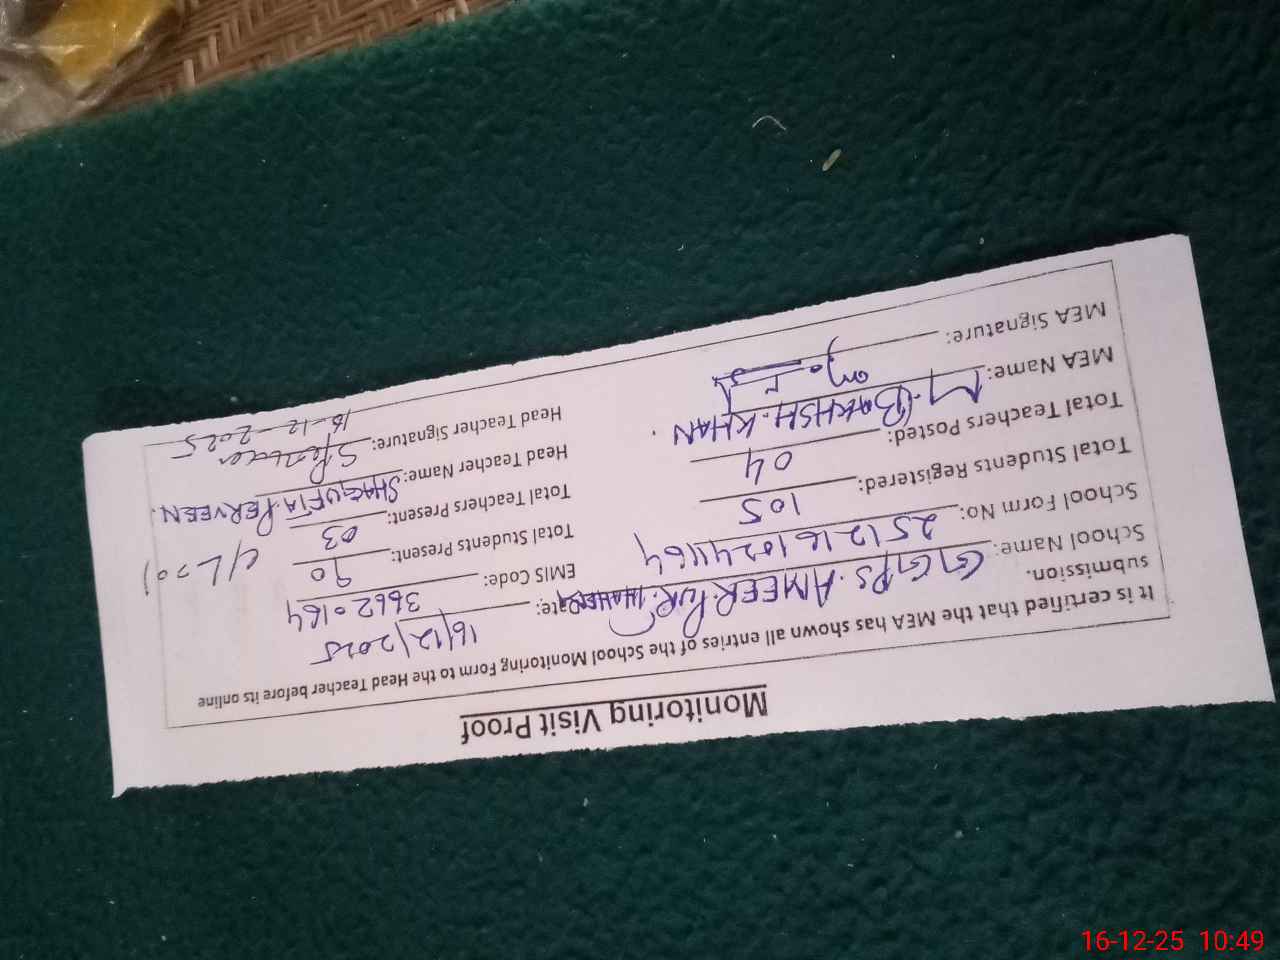 Monitoring Visit Proof
It is certified that the MEA has shown all entries of the School Monitoring Form to the Head Teacher before its online
submission.
School Name: GGPS. AMEER. PUR. Date: 16/12/2025
School Form No: EMIS Code: 36620164
Total Students Registered: 105 Total Students Present: 90
Total Teachers Posted: 04 Total Teachers Present: 03
MEA Name: M. BAKHSH. KHAN Head Teacher Name: SHAGUFTA. PERVEEN.
MEA Signature: Head Teacher Signature:
16-12-2025
16-12-25 10:49